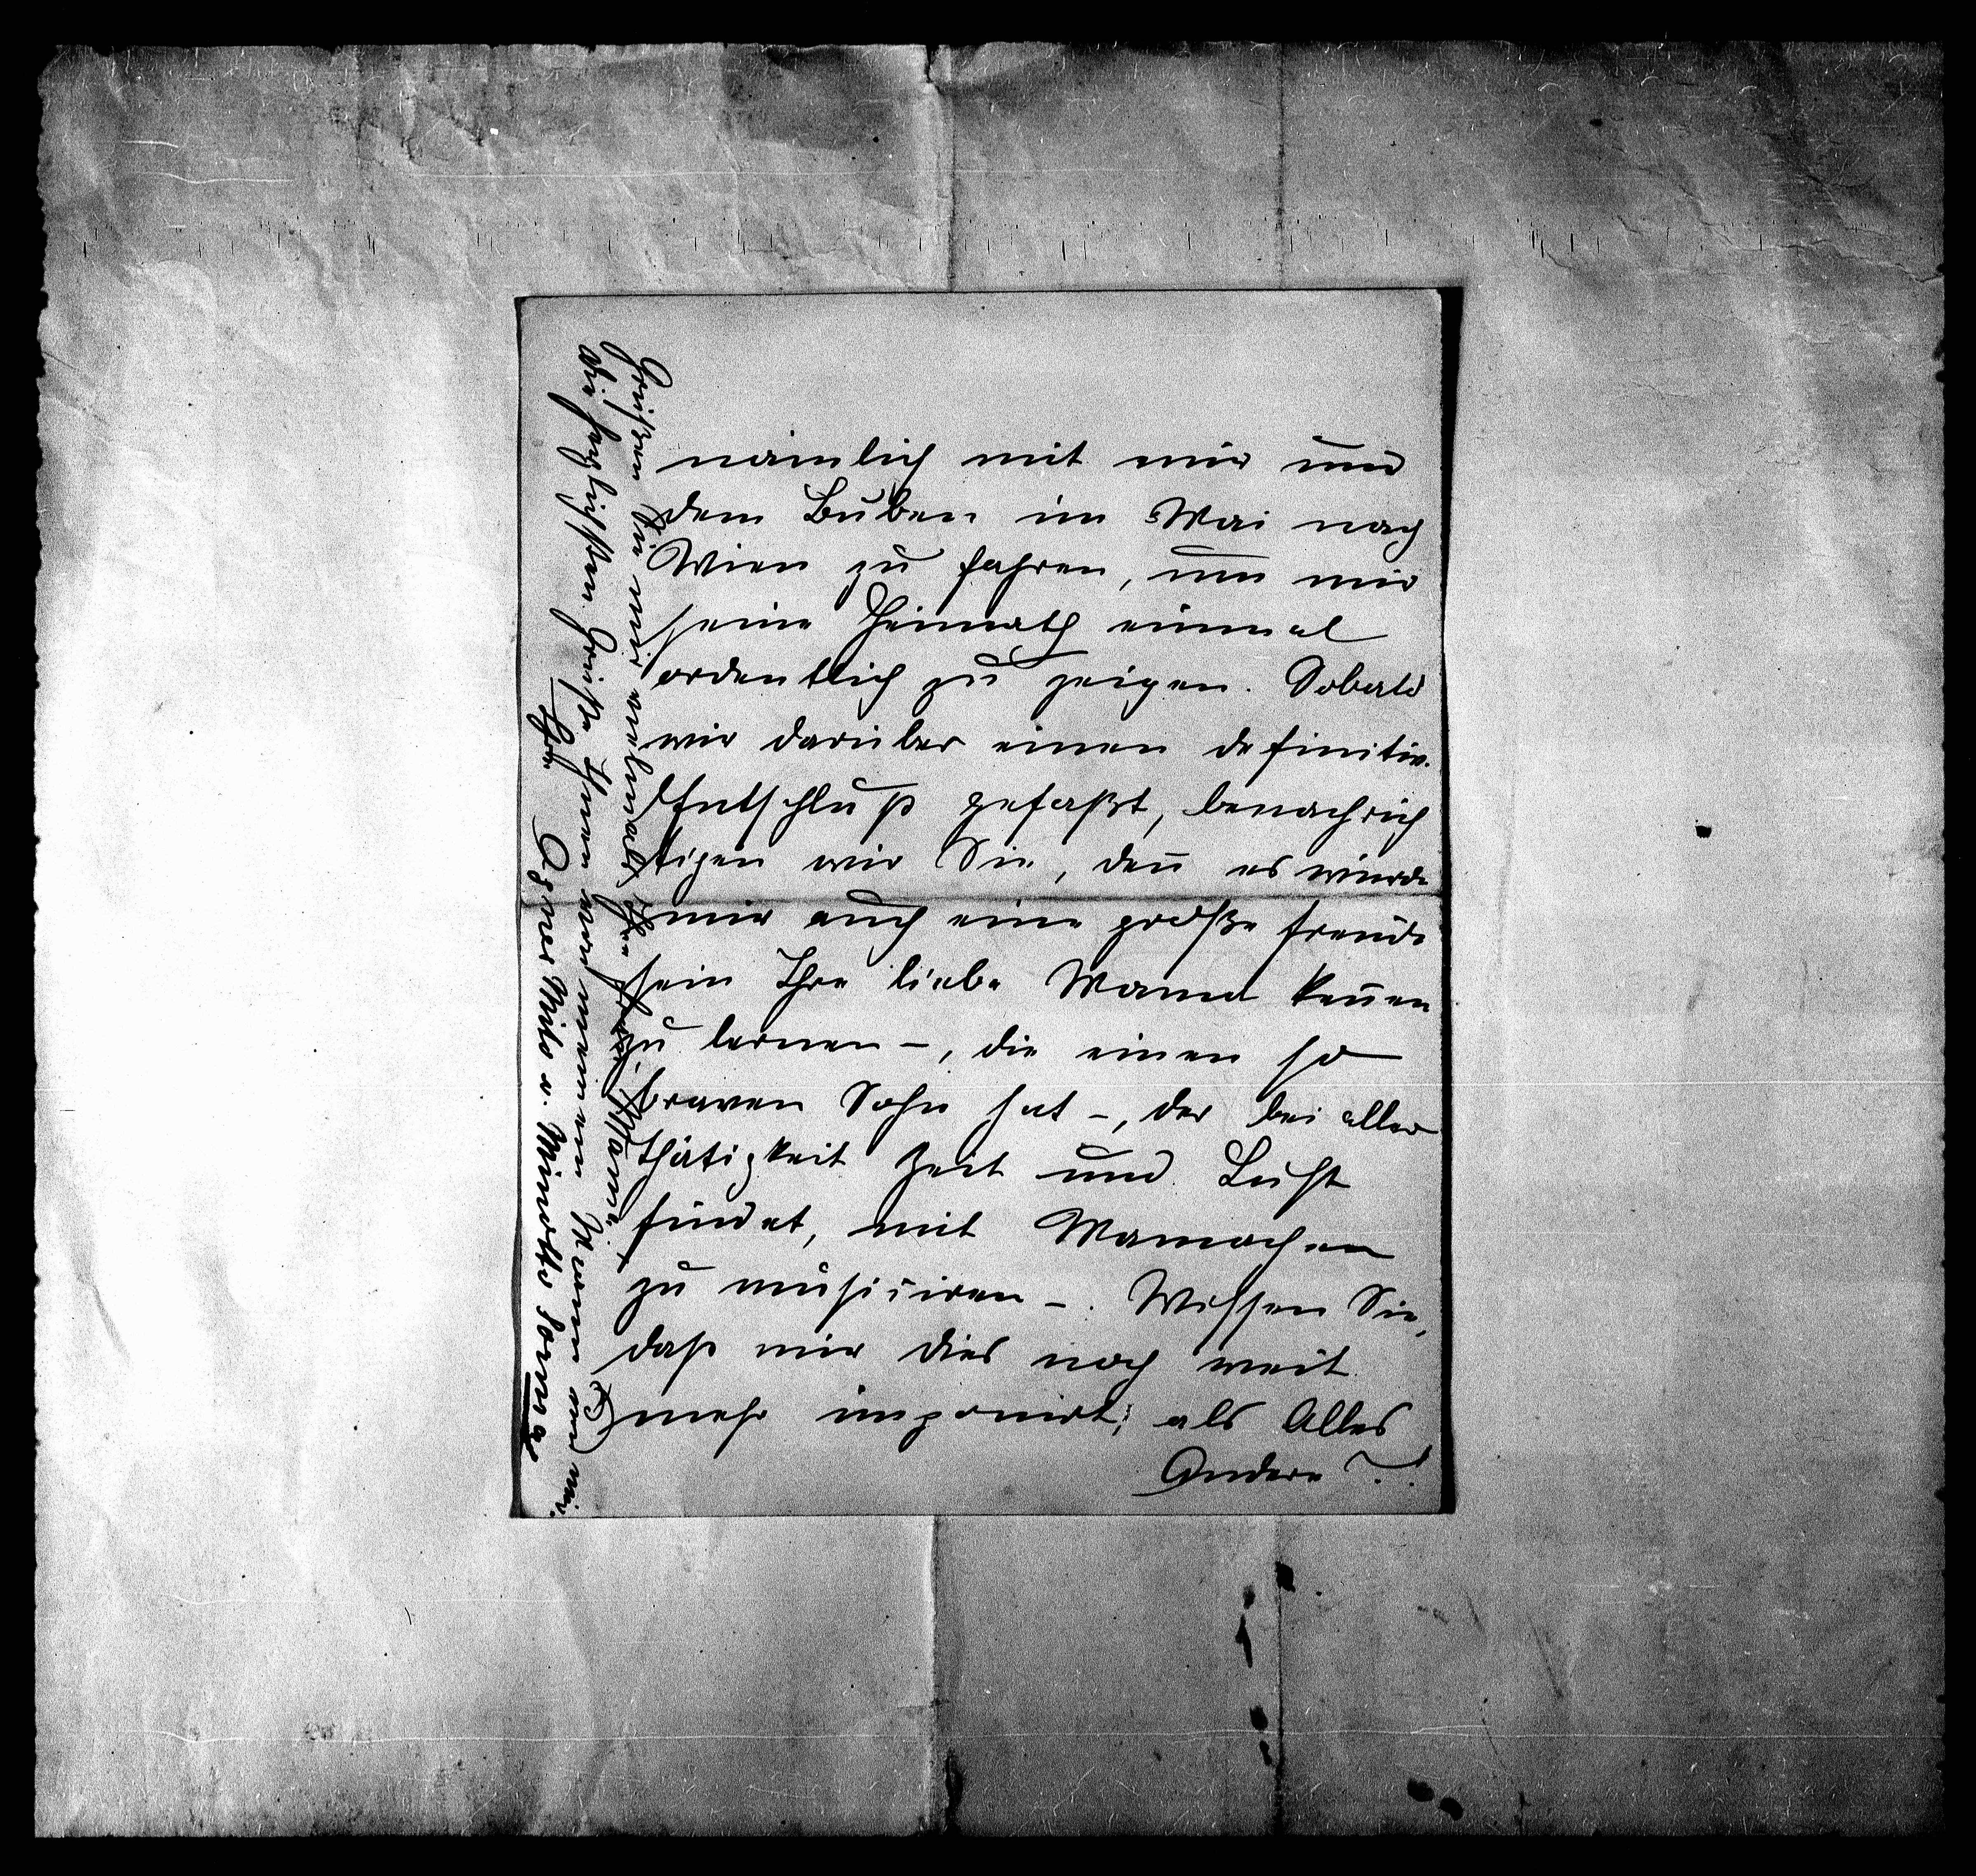 nämlich mit mir und
dem Buben im Mai nach
Wien zu fahren, um mir
seine Heimath einmal
ordentlich zu zeigen. Sobald
wir darüber einen definitiv.
Entschluß gefaßt, benachrich
tigen wir Sie, deñ es würde
mir auch eine große Freude
sein Ihre liebe Mama keñen
zu lernen –, die einen so
braven Sohn hat –, der bei aller
Thätigkeit Zeit und Lust
findet, mit Mamachen
zu musiciren –. Wissen Sie,
daß mir dies noch weit
mehr imponirt, als Alles
Andere?!
Grüßen Sie mir vielmals Ihre Mama,
die herzlichsten Grüße Ihnen von meinem Manne und mir.
Ihre
Agnes Mito v. Minotto Sorma